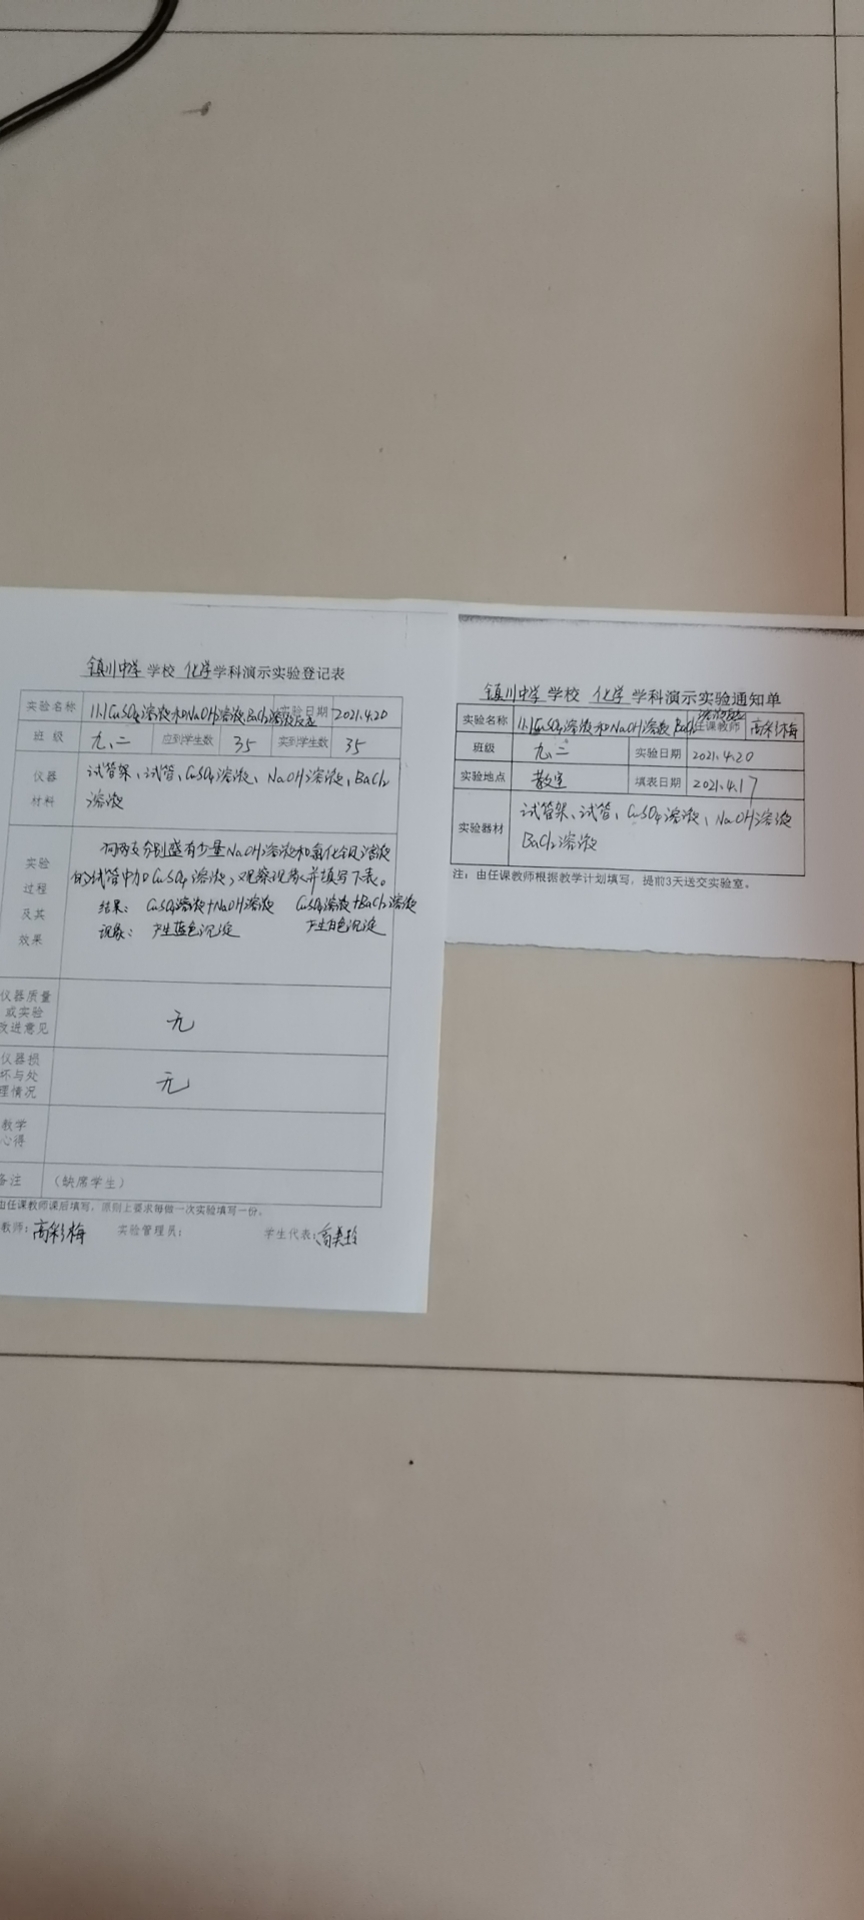 镇川中学 学校 化学 学科演示实验登记表
实验名称 11.1CuSO4溶液和NaOH溶液、BaCl2溶液反应 实验日期 2021.4.20
班 级 九、二 应到学生数 35 实到学生数 35
仪器
材料
试管架、试管、CuSO4溶液、NaOH溶液、BaCl2
溶液
实验
过程
及其
效果
向两支分别盛有少量NaOH溶液和氯化钡溶液
的试管中加CuSO4溶液,观察现象,并填写下表。
结果: CuSO4溶液+NaOH溶液 CuSO4溶液+BaCl2溶液
现象: 产生蓝色沉淀 产生白色沉淀
仪器质量
或实验
改进意见
无
仪器损
坏与处
理情况
无
教学
心得
备注 (缺席学生)
由任课教师课后填写,原则上要求每做一次实验填写一份。
教师: 高彩梅 实验管理员: 学生代表:
镇川中学 学校 化学 学科演示实验通知单
实验名称 11.1CuSO4溶液和NaOH溶液、BaCl2溶液反应 任课教师 高彩梅
班级 九、二 实验日期 2021.4.20
实验地点 教室 填表日期 2021.4.17
实验器材
试管架、试管、CuSO4溶液、NaOH溶液
BaCl2溶液
注:由任课教师根据教学计划填写,提前3天送交实验室。